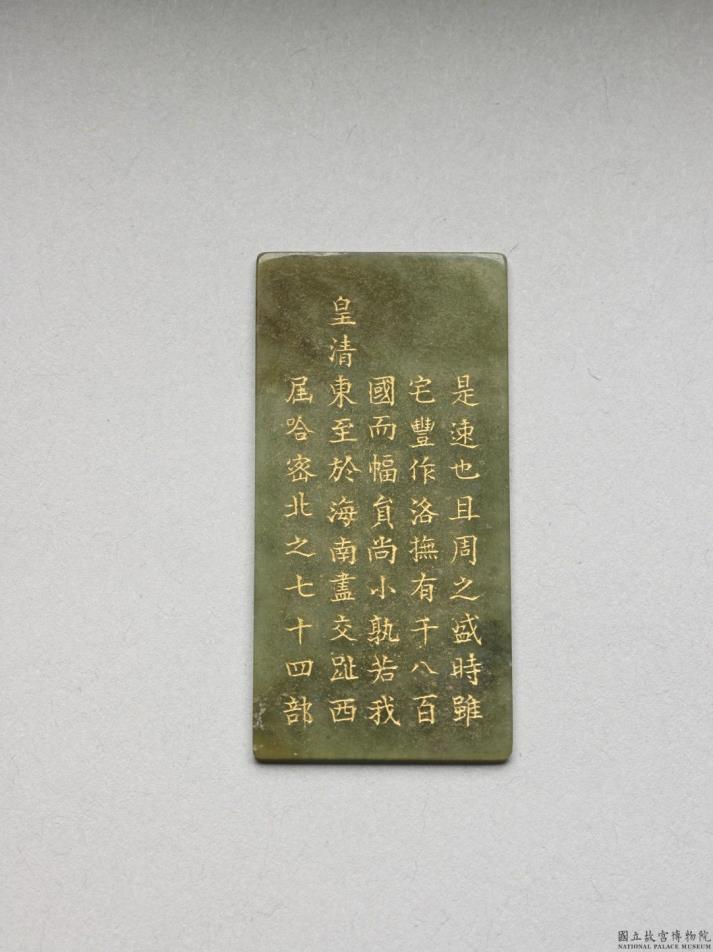 是速也且周之盛時雖
宅豐作洛撫有千八百
國而幅員尚小孰若我
皇清東至於海南盡交趾西
屆哈密北之七十四部
國立故宮博物院
NATIONAL PALACE MUSEUM